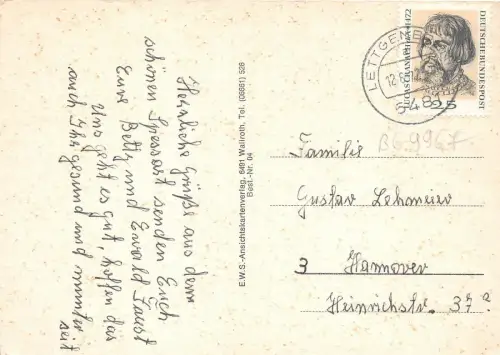 Herrliche Grüße aus dem
schönen Spessart senden Euch
Eure Betty und Ewald Faust
Uns geht es gut, hoffen das
auch Ihr gesund und munter
seid
E.W.S.-Ansichtskartenverlag, 6491 Wallroth, Tel. (06661) 526
Best.-Nr. 04
LETTGENB
DEUTSCHE BUNDESPOST
LUCAS CRANACH 1472
25
BG 9967
Familie
Gustav Lehmeier
3 Hannover
Heinrichstr. 37